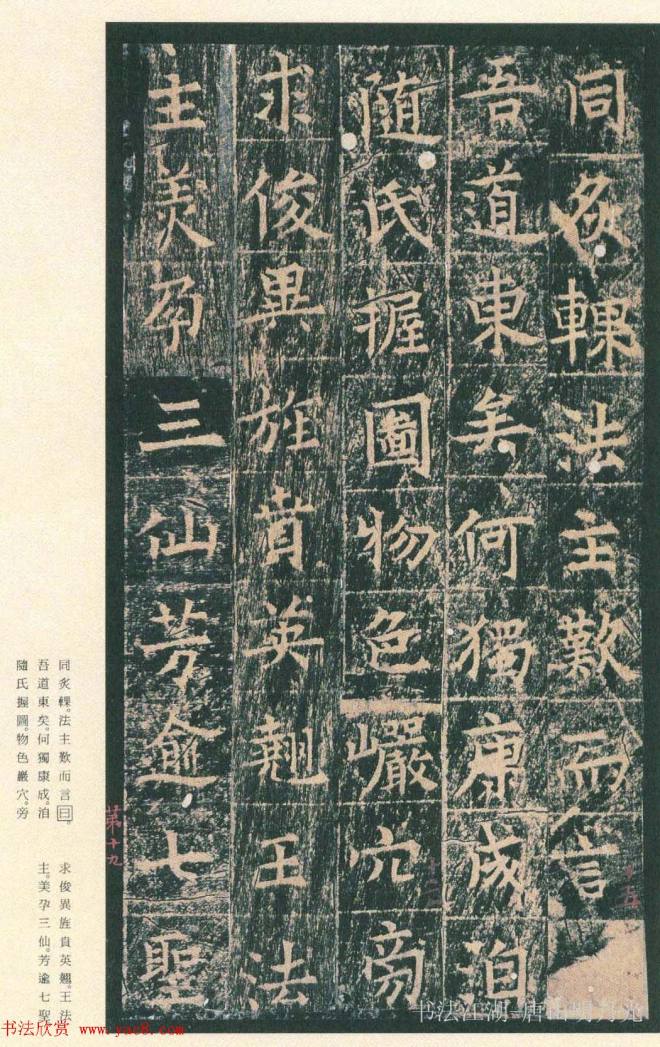 同炙輠法主歎而言
吾道東矣何獨康成洎
随氏握圖物色巖穴旁
求俊異旌賁英翹王法
主美孕三仙芳逾七聖
同炙輠。法主歎而言曰。
吾道東矣。何獨康成。洎
隨氏握圖。物色巖穴。旁
求俊異旌賁英翹。王法
主。美孕三仙。芳逾七聖
第十九
十五
書法江湖-唐山明月光
书法欣赏 www.yac8.com